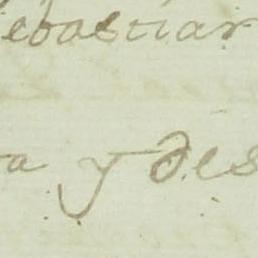 ebastian
a y des